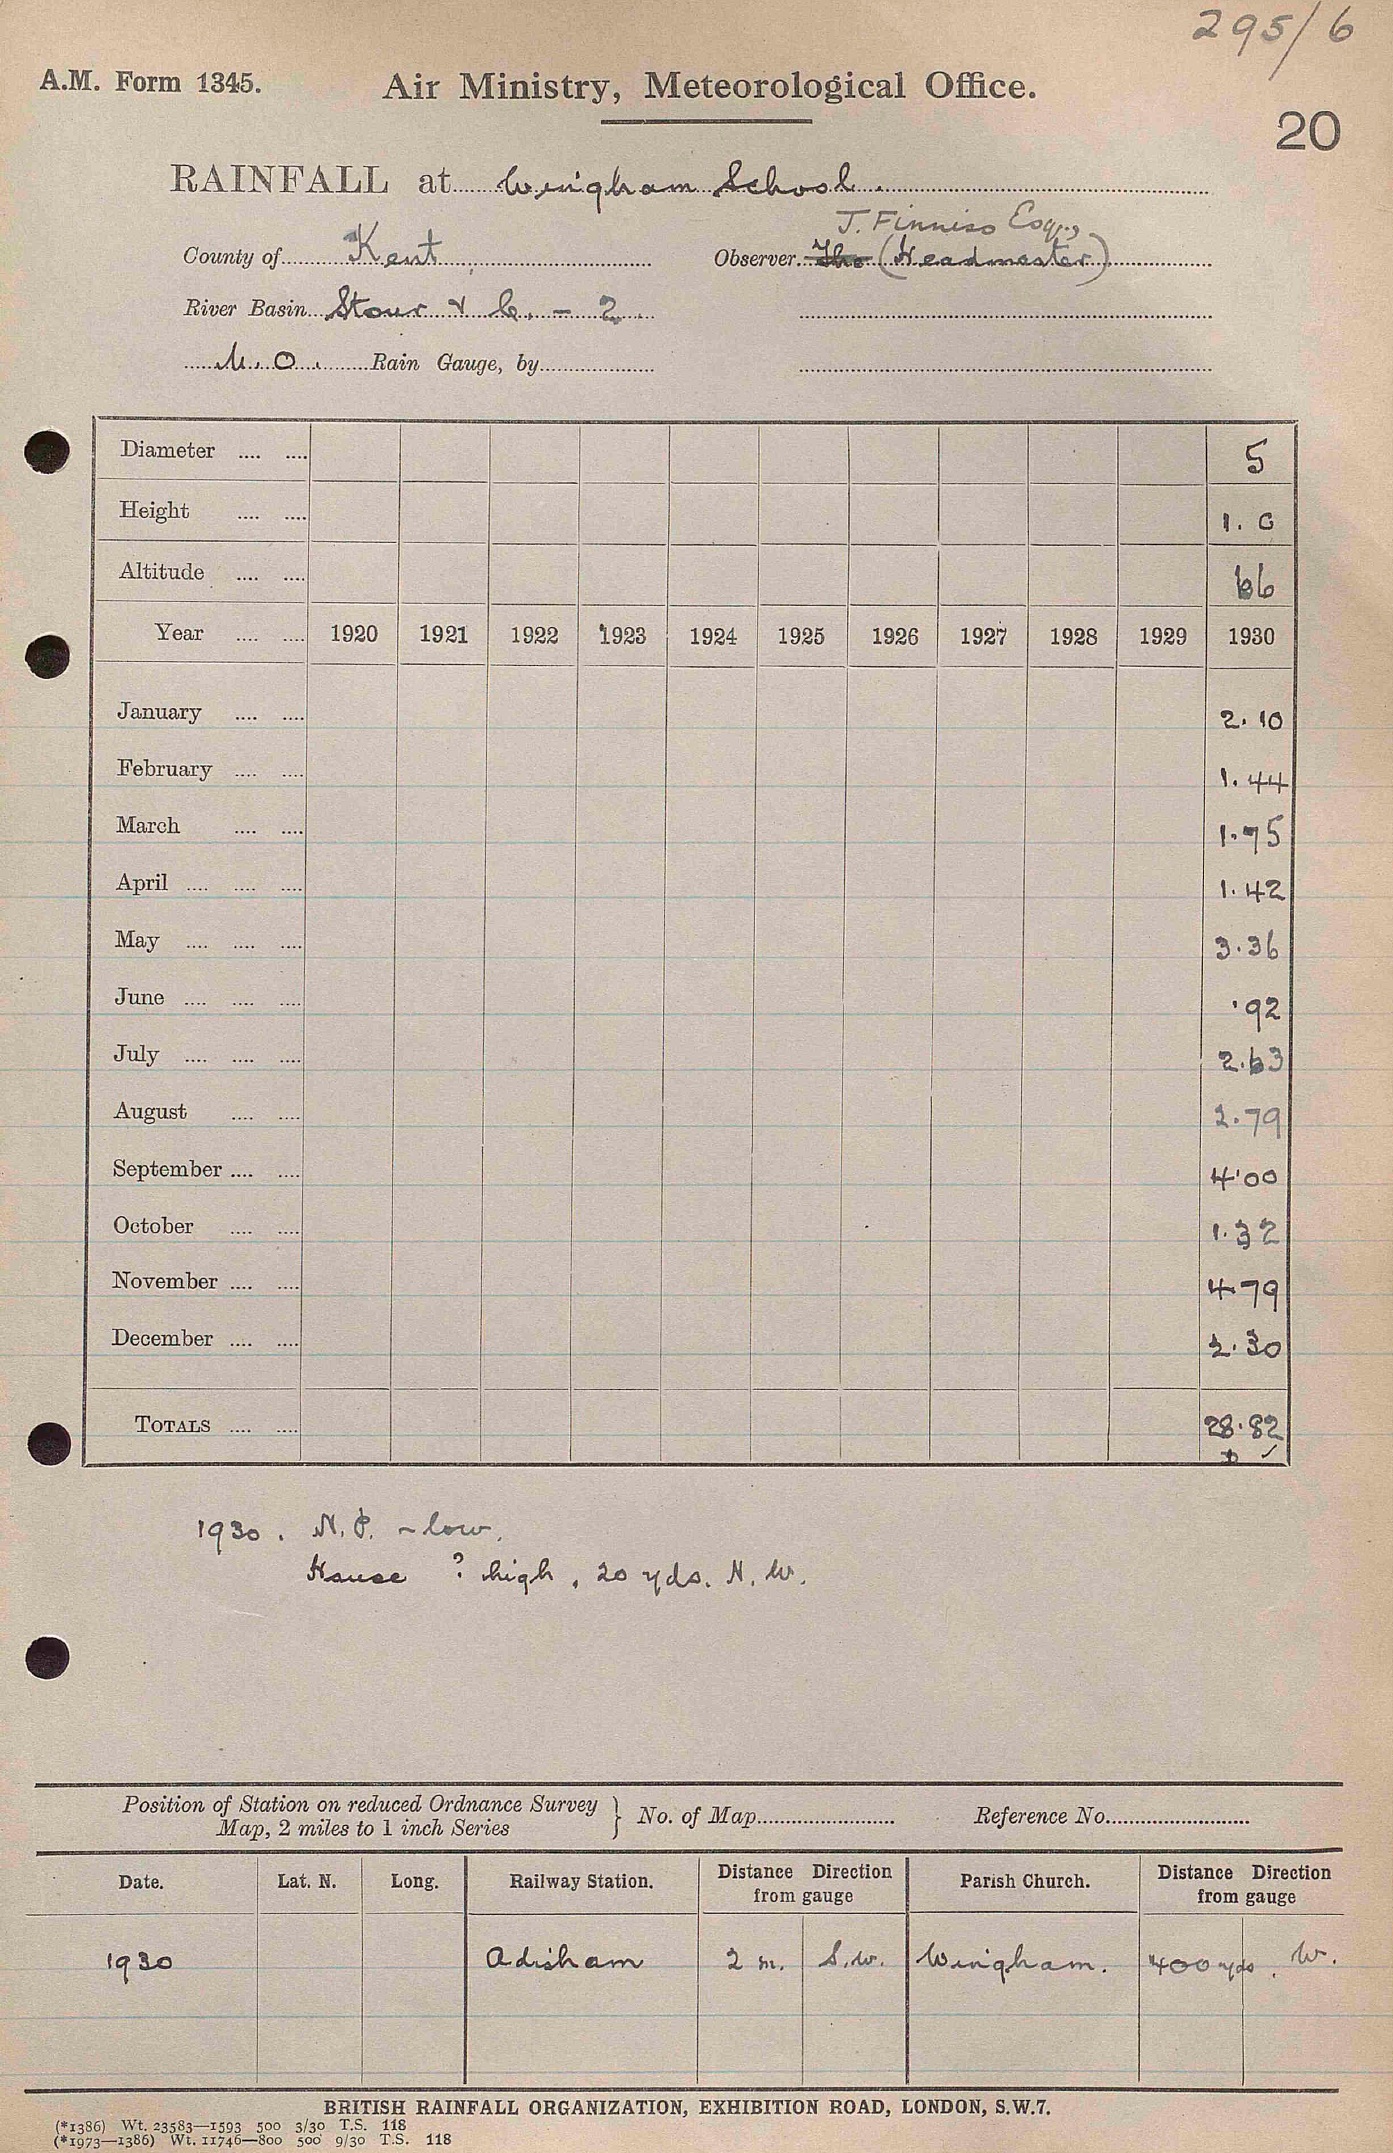 295/6
A.M. Form 1345. Air Ministry, Meteorological Office.
20
RAINFALL at Wingham School.
J. Finniss Esq.,
County of Kent Observer The (Headmaster)
River Basin Stour & C. - 2.
M.O. Rain Gauge, by
Diameter .... .... 5
Height .... .... 1.0
Altitude .... .... 66
Year .... .... 1920 1921 1922 1923 1924 1925 1926 1927 1928 1929 1930
January .... .... 2.10
February .... .... 1.44
March .... .... 1.75
April .... .... .... 1.42
May .... .... .... 3.36
June .... .... .... .92
July .... .... .... 2.63
August .... .... 2.79
September .... .... 4.00
October .... .... 1.32
November .... .... 4.79
December .... .... 2.30
TOTALS .... .... 28.82
1930. N.P. ~ low.
House ? high, 20 yds. N.W.
Position of Station on reduced Ordnance Survey Map, 2 miles to 1 inch Series } No. of Map Reference No.
Date. Lat. N. Long. Railway Station. Distance Direction from gauge Parish Church. Distance Direction from gauge
1930 Adisham 2 m. S.W. Wingham. 400 yds. W.
BRITISH RAINFALL ORGANIZATION, EXHIBITION ROAD, LONDON, S.W.7.
(*1386) Wt. 23583—1593 500 3/30 T.S. 118
(*1973—1386) Wt. 11746—800 500 9/30 T.S. 118